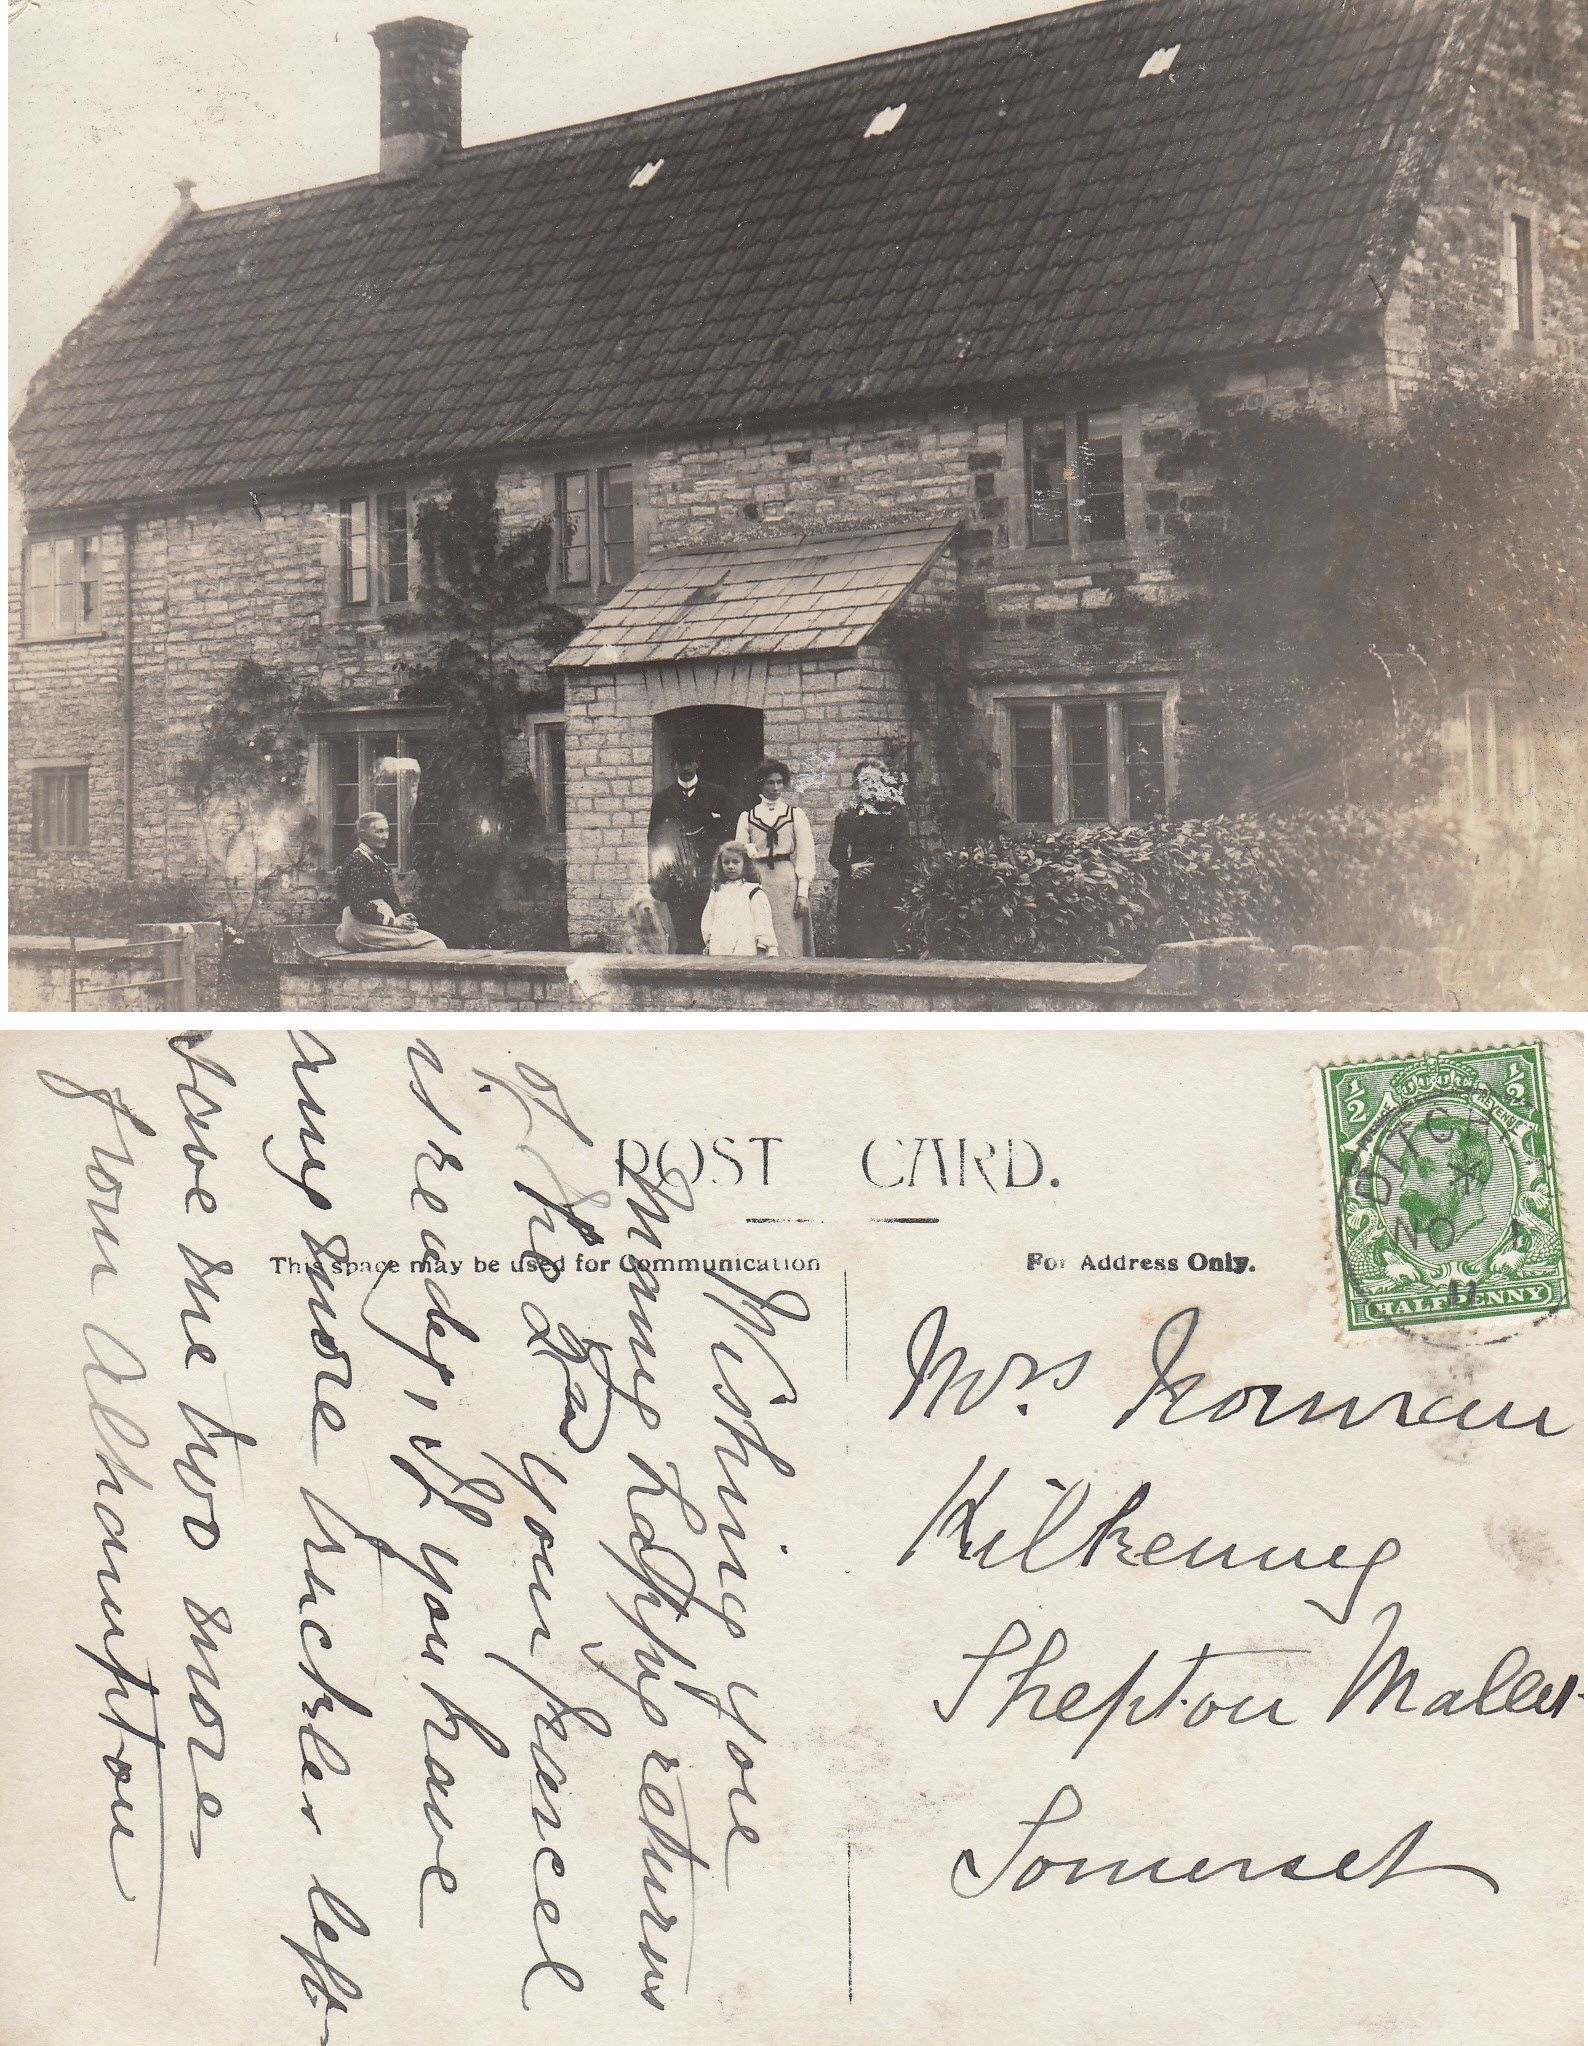 POST CARD.
This space may be used for Communication
For Address Only.
½ ½
POSTAGE REVENUE
HALFPENNY
DITCH
NO 1
11
Mrs Norman
Kilkenny
Shepton Mallet
Somerset
Wishing you
Many happye returns
of the Day your parcel
is ready, If you have
any more truckles left
Save me two more
from Alhampton